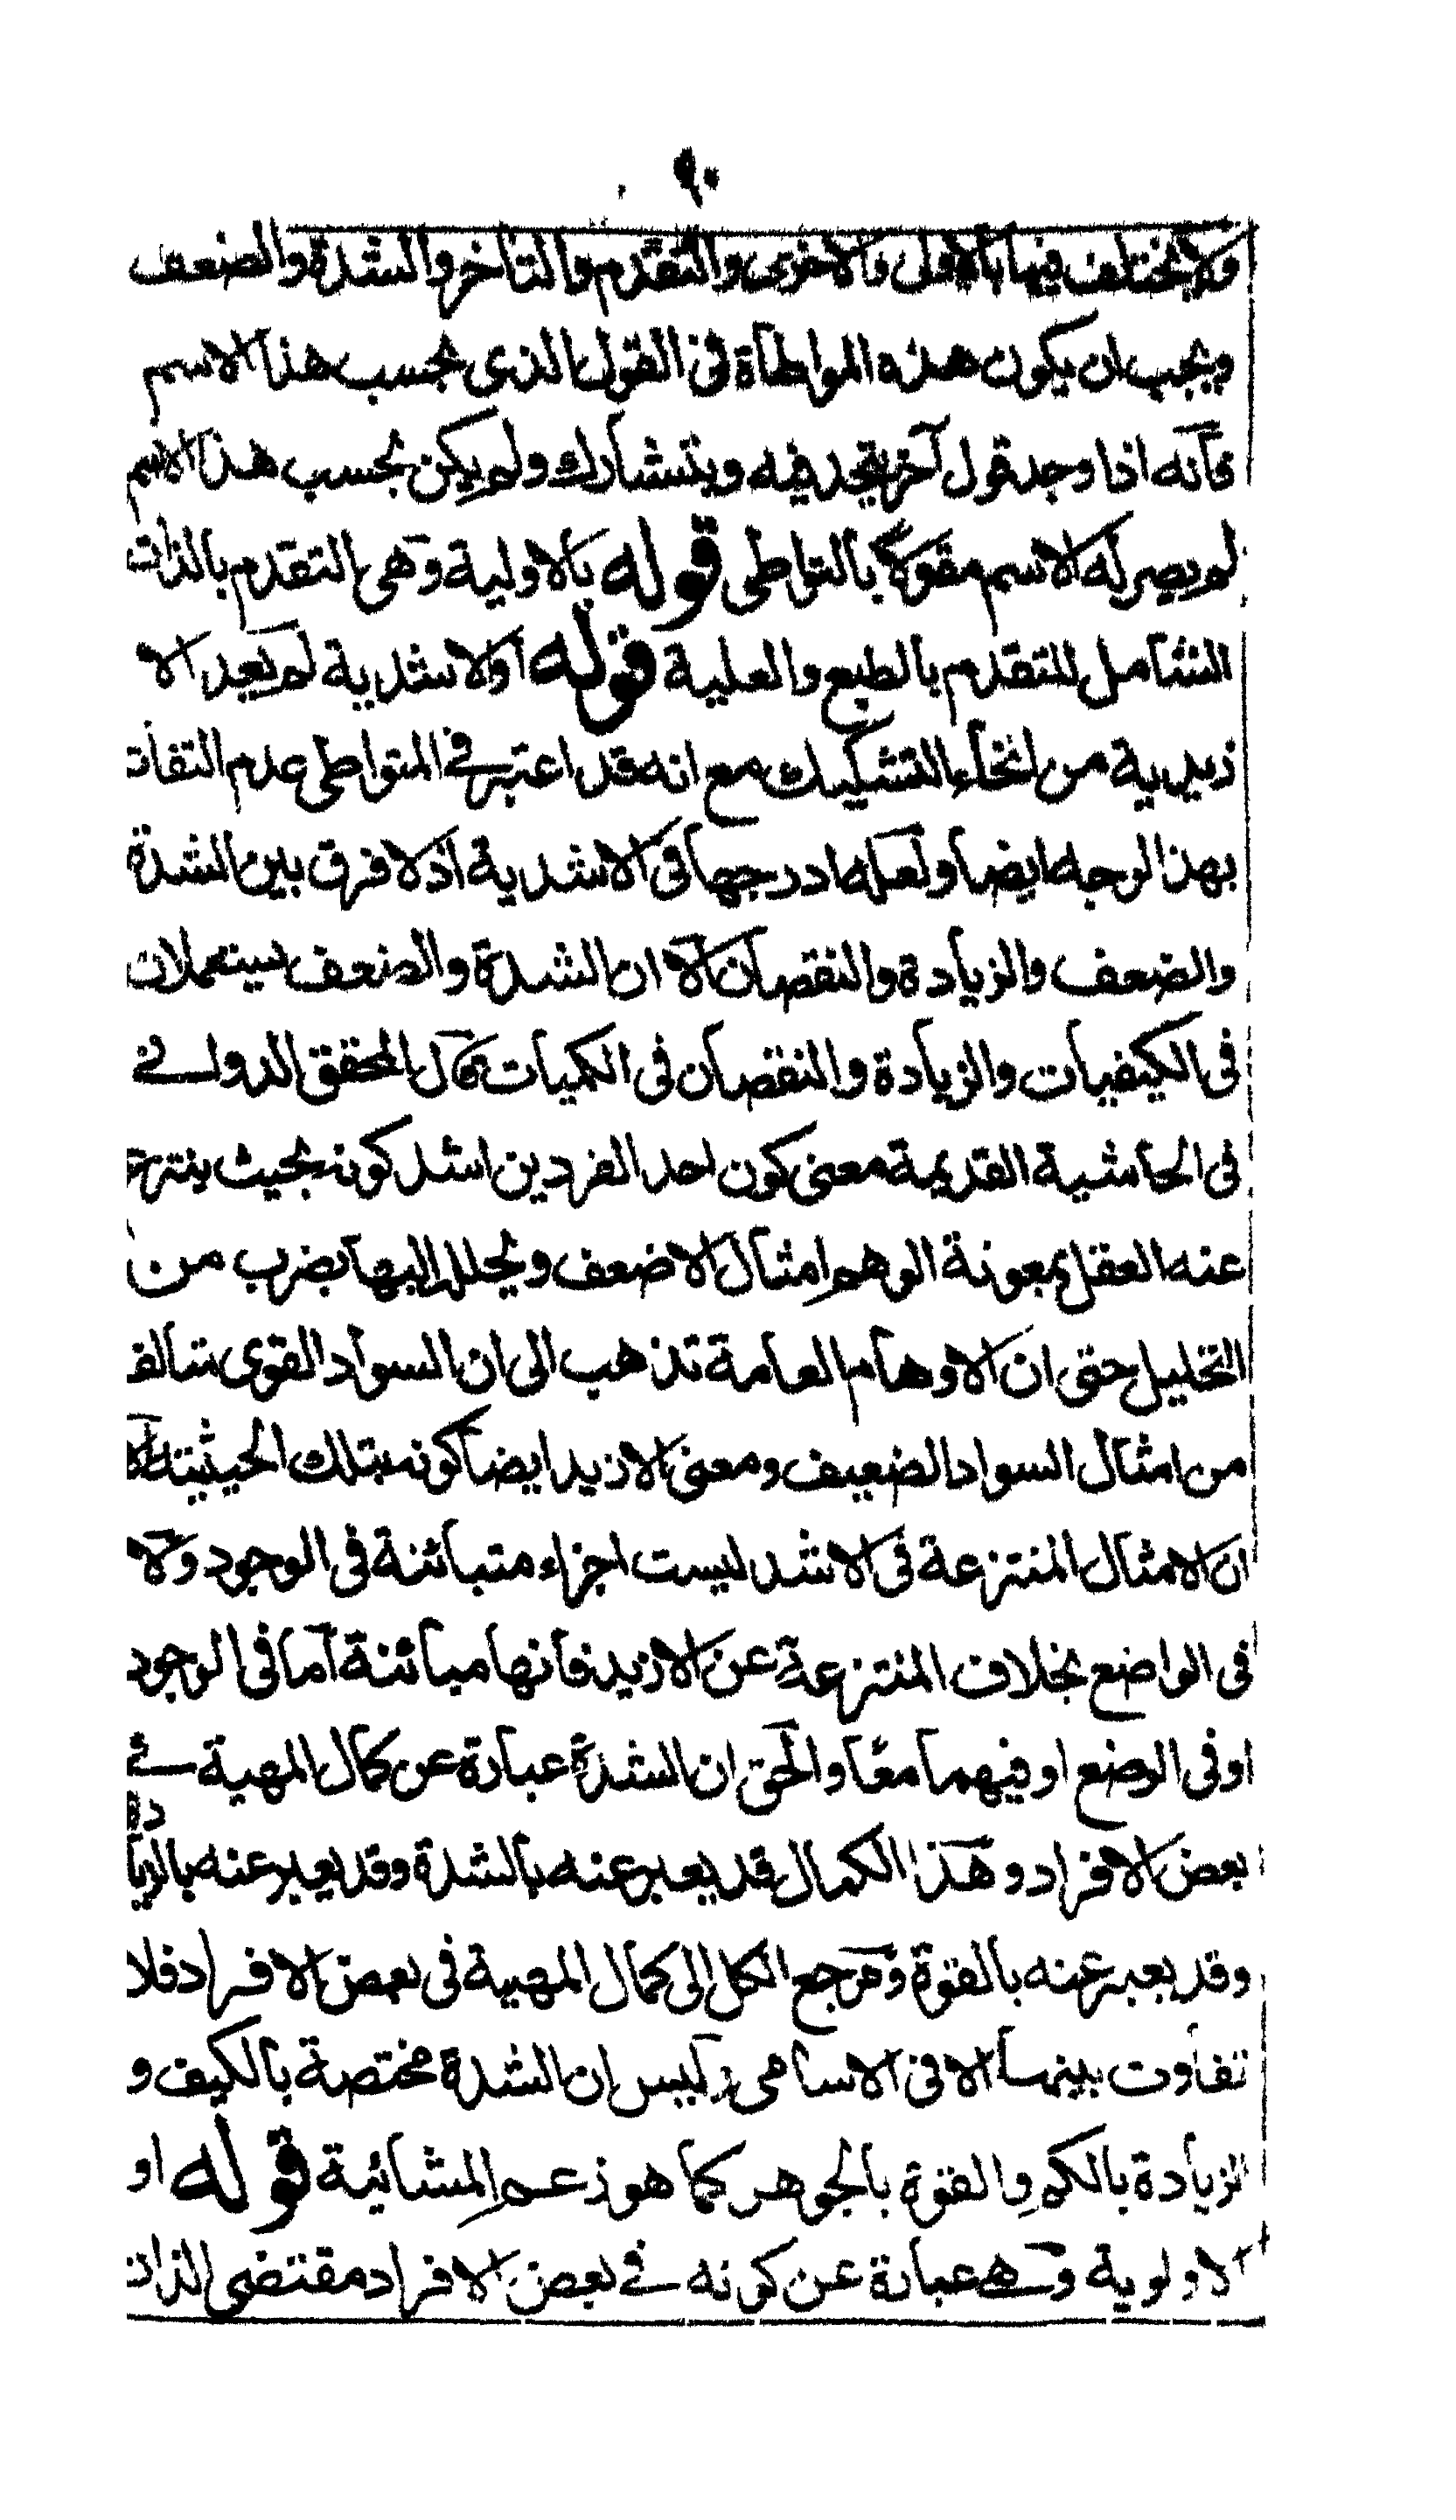 ٩٠
ولا يختلف فيها بالاولى والاخرى والتقدم والتاخر والشدة والضعف
ويجب ان يكون هذه المواطاة فى القول الذى بحسب هذا الاسم
فانه اذا وجد قول آخر يتحد فيه ويتشارك ولم يكن بحسب هذا الاسم
لم يصر له الاسم مقولا بالتواطى قوله بالاولية وهى التقدم بالذات
الشامل للتقدم بالطبع والعلية قوله اولاشدية لم يعد الا
زيدية من انحاء التشكيك مع انه قد اعتبر فى المتواطى عدم التفاوت
بهذا الوجه ايضا ولعله ادرجها فى الاشدية اذ لا فرق بين الشدة
والضعف والزيادة والنقصان الا ان الشدة والضعف يستعملان
فى الكيفيات والزيادة والنقصان فى الكميات قال المحقق الدوانے
فى الحاشية القديمة معنى كون احد الفردين اشد كونه بحيث ينتزع
عنه العقل بمعونة الوهم امثال الاضعف ويحلل اليها بضرب من
التحليل حتى ان الاوهام العامة تذهب الى ان السواد القوى متالف
من امثال السواد الضعيف ومعنى الازيد ايضا كونه بتلك الحيثية الا
ان الامثال المنتزعة فى الاشد ليست اجزاء متبائنة فى الوجود ولا
فى الواضع بخلاف المنتزعة عن الازيد فانها مبائنة اما فى الوجود
او فى الوضع او فيهما معًا والحق ان الشدة عبارة عن كمال المهية فے
بعض الافراد وهذا الكمال قد يعبر عنه بالشدة وقد يعبر عنه بالزيادة
وقد يعبر عنه بالقوة ومرجع الكل الى كمال المهية فى بعض الافراد فلا
تفاوت بينها الا فى الاسامى وليس ان الشدة مختصة بالكيف و
الزيادة بالكم والقوة بالجوهر كما هو زعم المشائية قوله او
الاولوية وهے عبارة عن كونه فے بعض الافراد مقتضى الذات